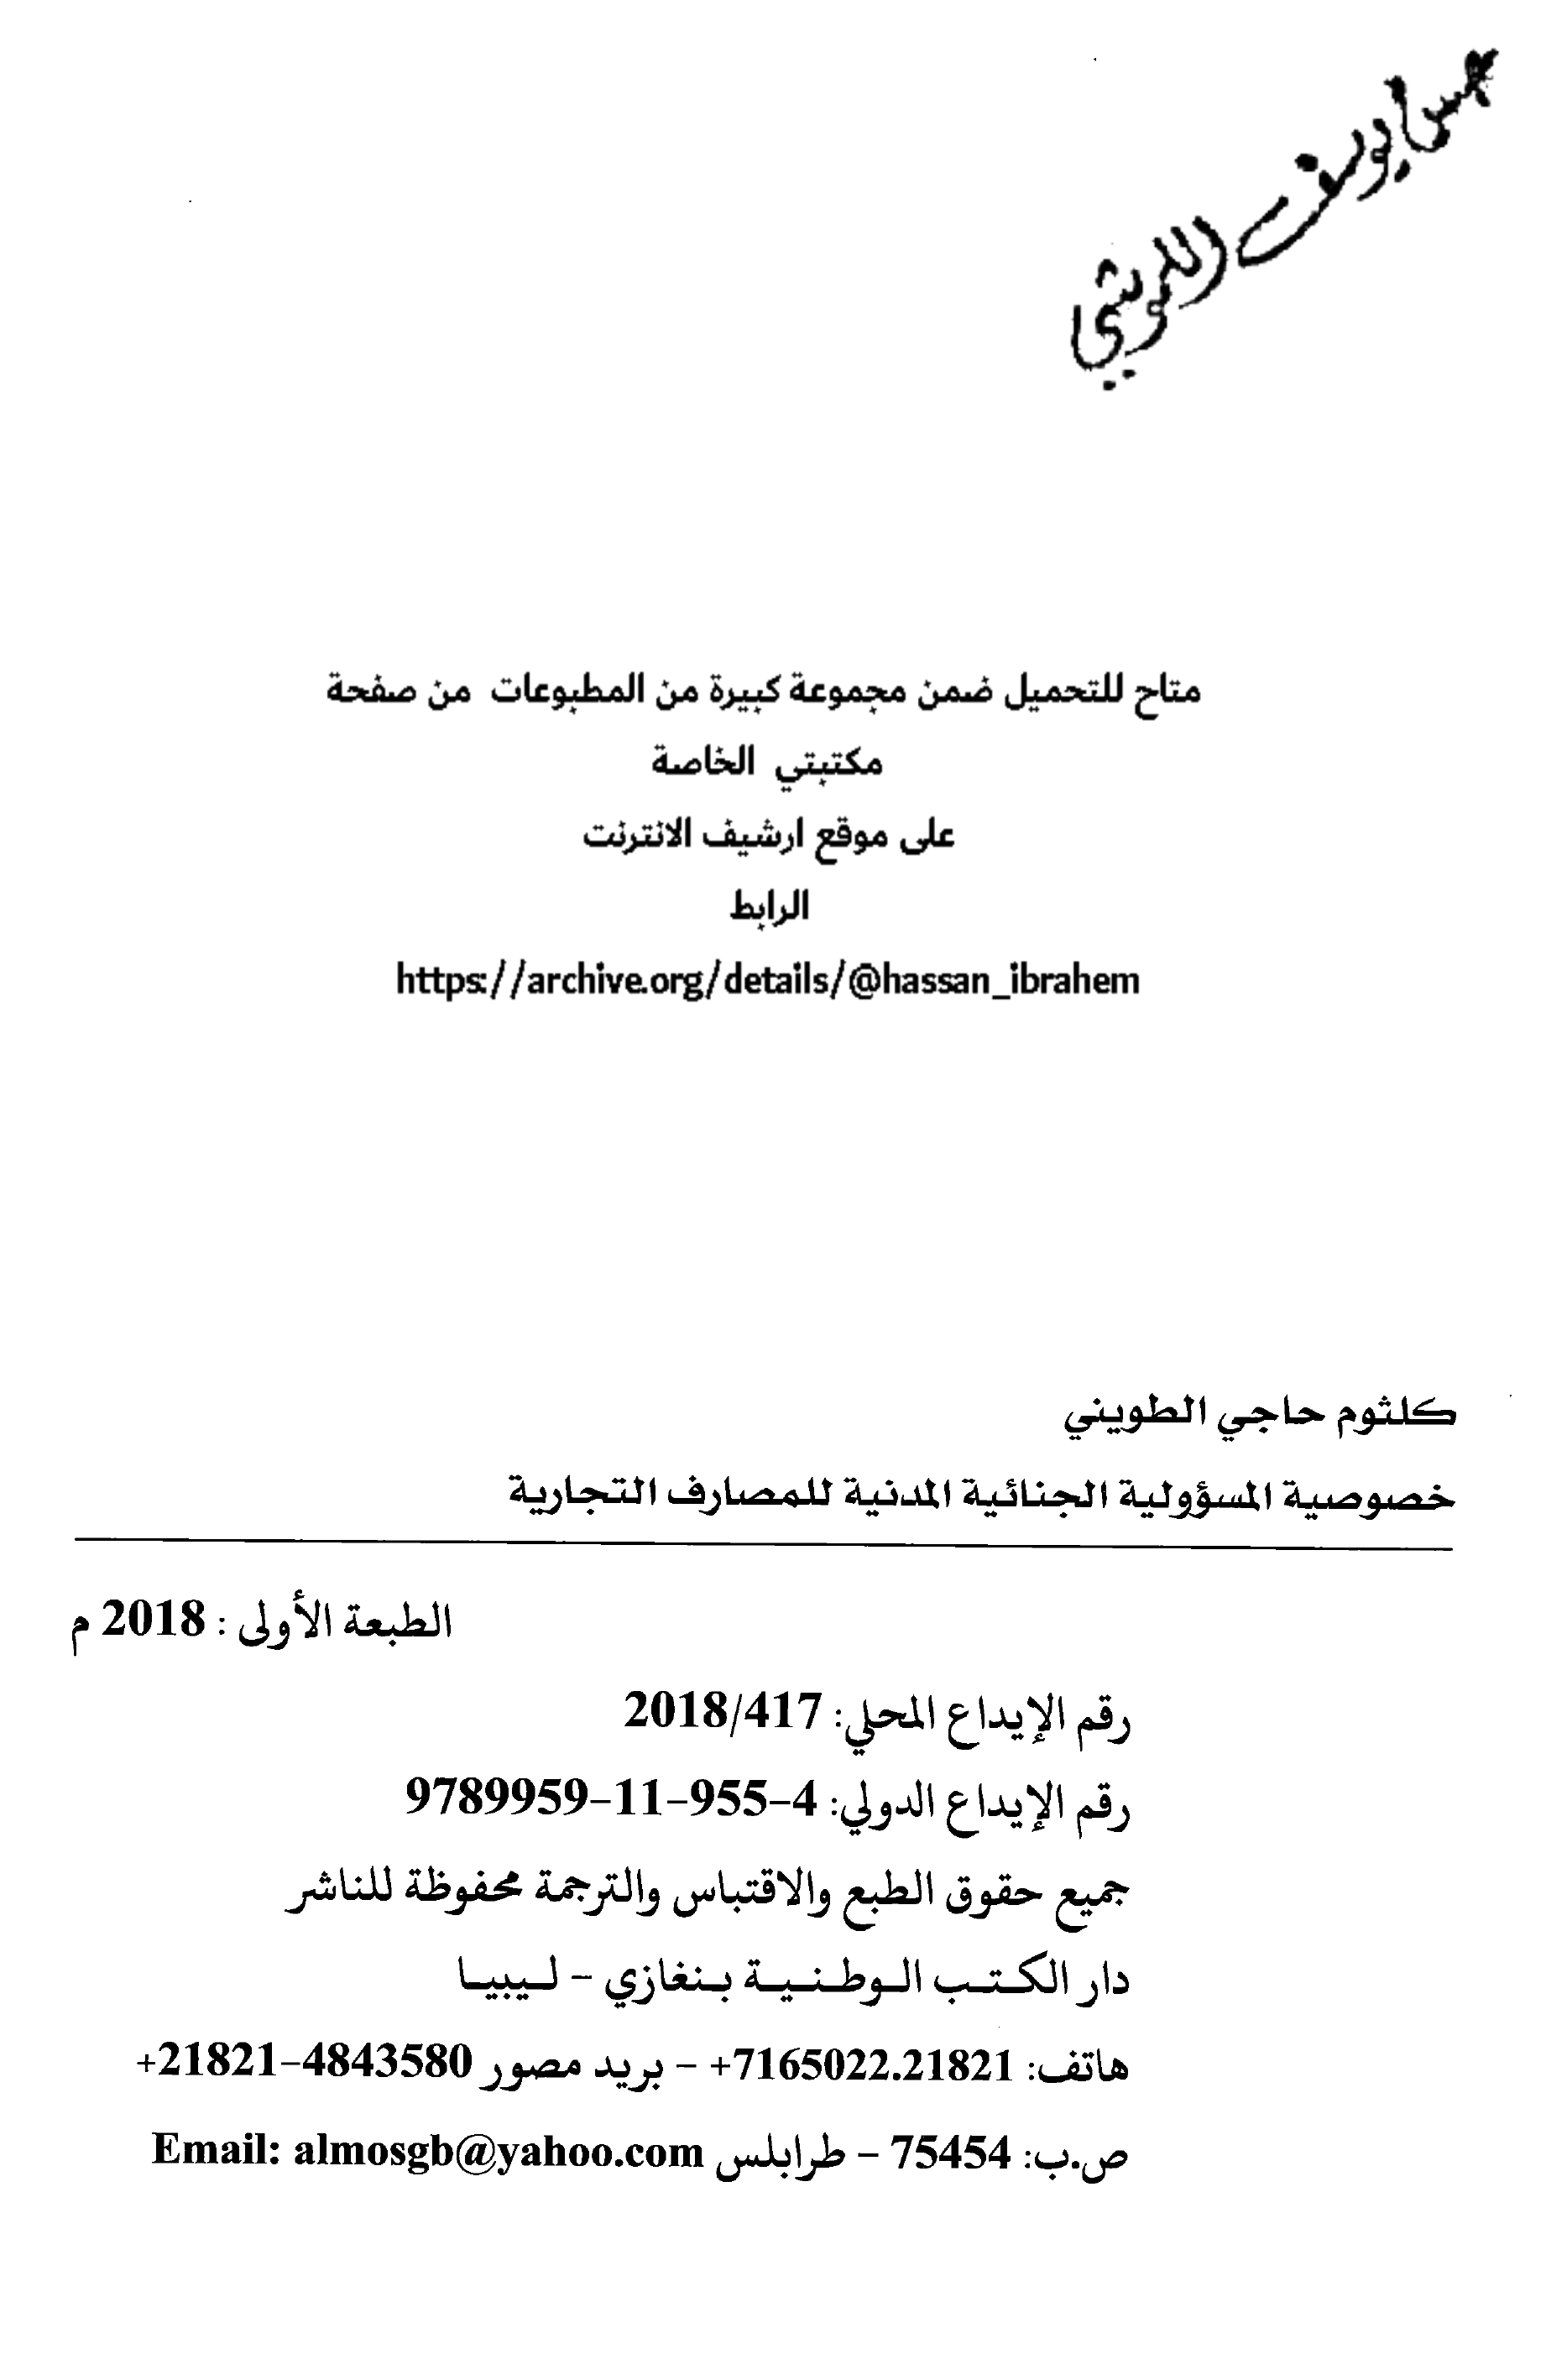 يوسف
متاح للتحميل ضمن مجموعة كبيرة من المطبوعات من صفحة
مكتبتي الخاصة
على موقع ارشيف الانترنت
الرابط
https://archive.org/details/@hassan_ibrahem
كلثوم حاجي الطويني
خصوصية المسؤولية الجنائية المدنية للمصارف التجارية
الطبعة الأولى : 2018 م
رقم الإيداع المحلي: 2018/417
رقم الإيداع الدولي: 4-955-11-9789959
جميع حقوق الطبع والاقتباس والترجمة محفوظة للناشر
دار الكتب الوطنية بنغازي - ليبيا
هاتف: 7165022.21821+ - بريد مصور 4843580-21821+
ص.ب: 75454 - طرابلس Email: almosgb@yahoo.com